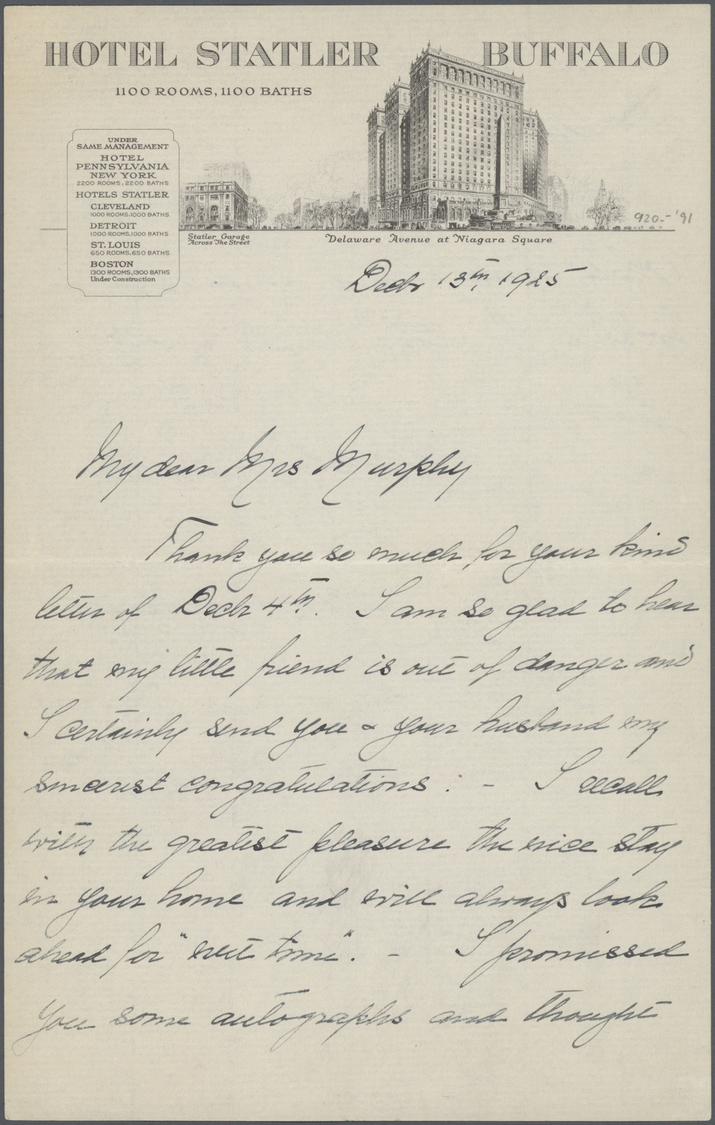 HOTEL STATLER BUFFALO
1100 ROOMS, 1100 BATHS
UNDER
SAME MANAGEMENT
HOTEL
PENNSYLVANIA
NEW YORK
2200 ROOMS, 2200 BATHS
HOTELS STATLER
CLEVELAND
1000 ROOMS, 1000 BATHS
DETROIT
1000 ROOMS, 1000 BATHS
ST. LOUIS
650 ROOMS, 650 BATHS
BOSTON
1300 ROOMS, 1300 BATHS
Under Construction
Statler Garage
Across The Street
Delaware Avenue at Niagara Square
920.-'91
Decbr 13th 1925
My dear Mrs Murphy
Thank you so much for your kind
letter of Decbr 4th. I am so glad to hear
that my little friend is out of danger and
I certainly send you & your husband my
sincerest congratulations : - I recall
with the greatest pleasure the nice stay
in your home and will always look
ahead for "next time". - I promissed
you some autographs and thought